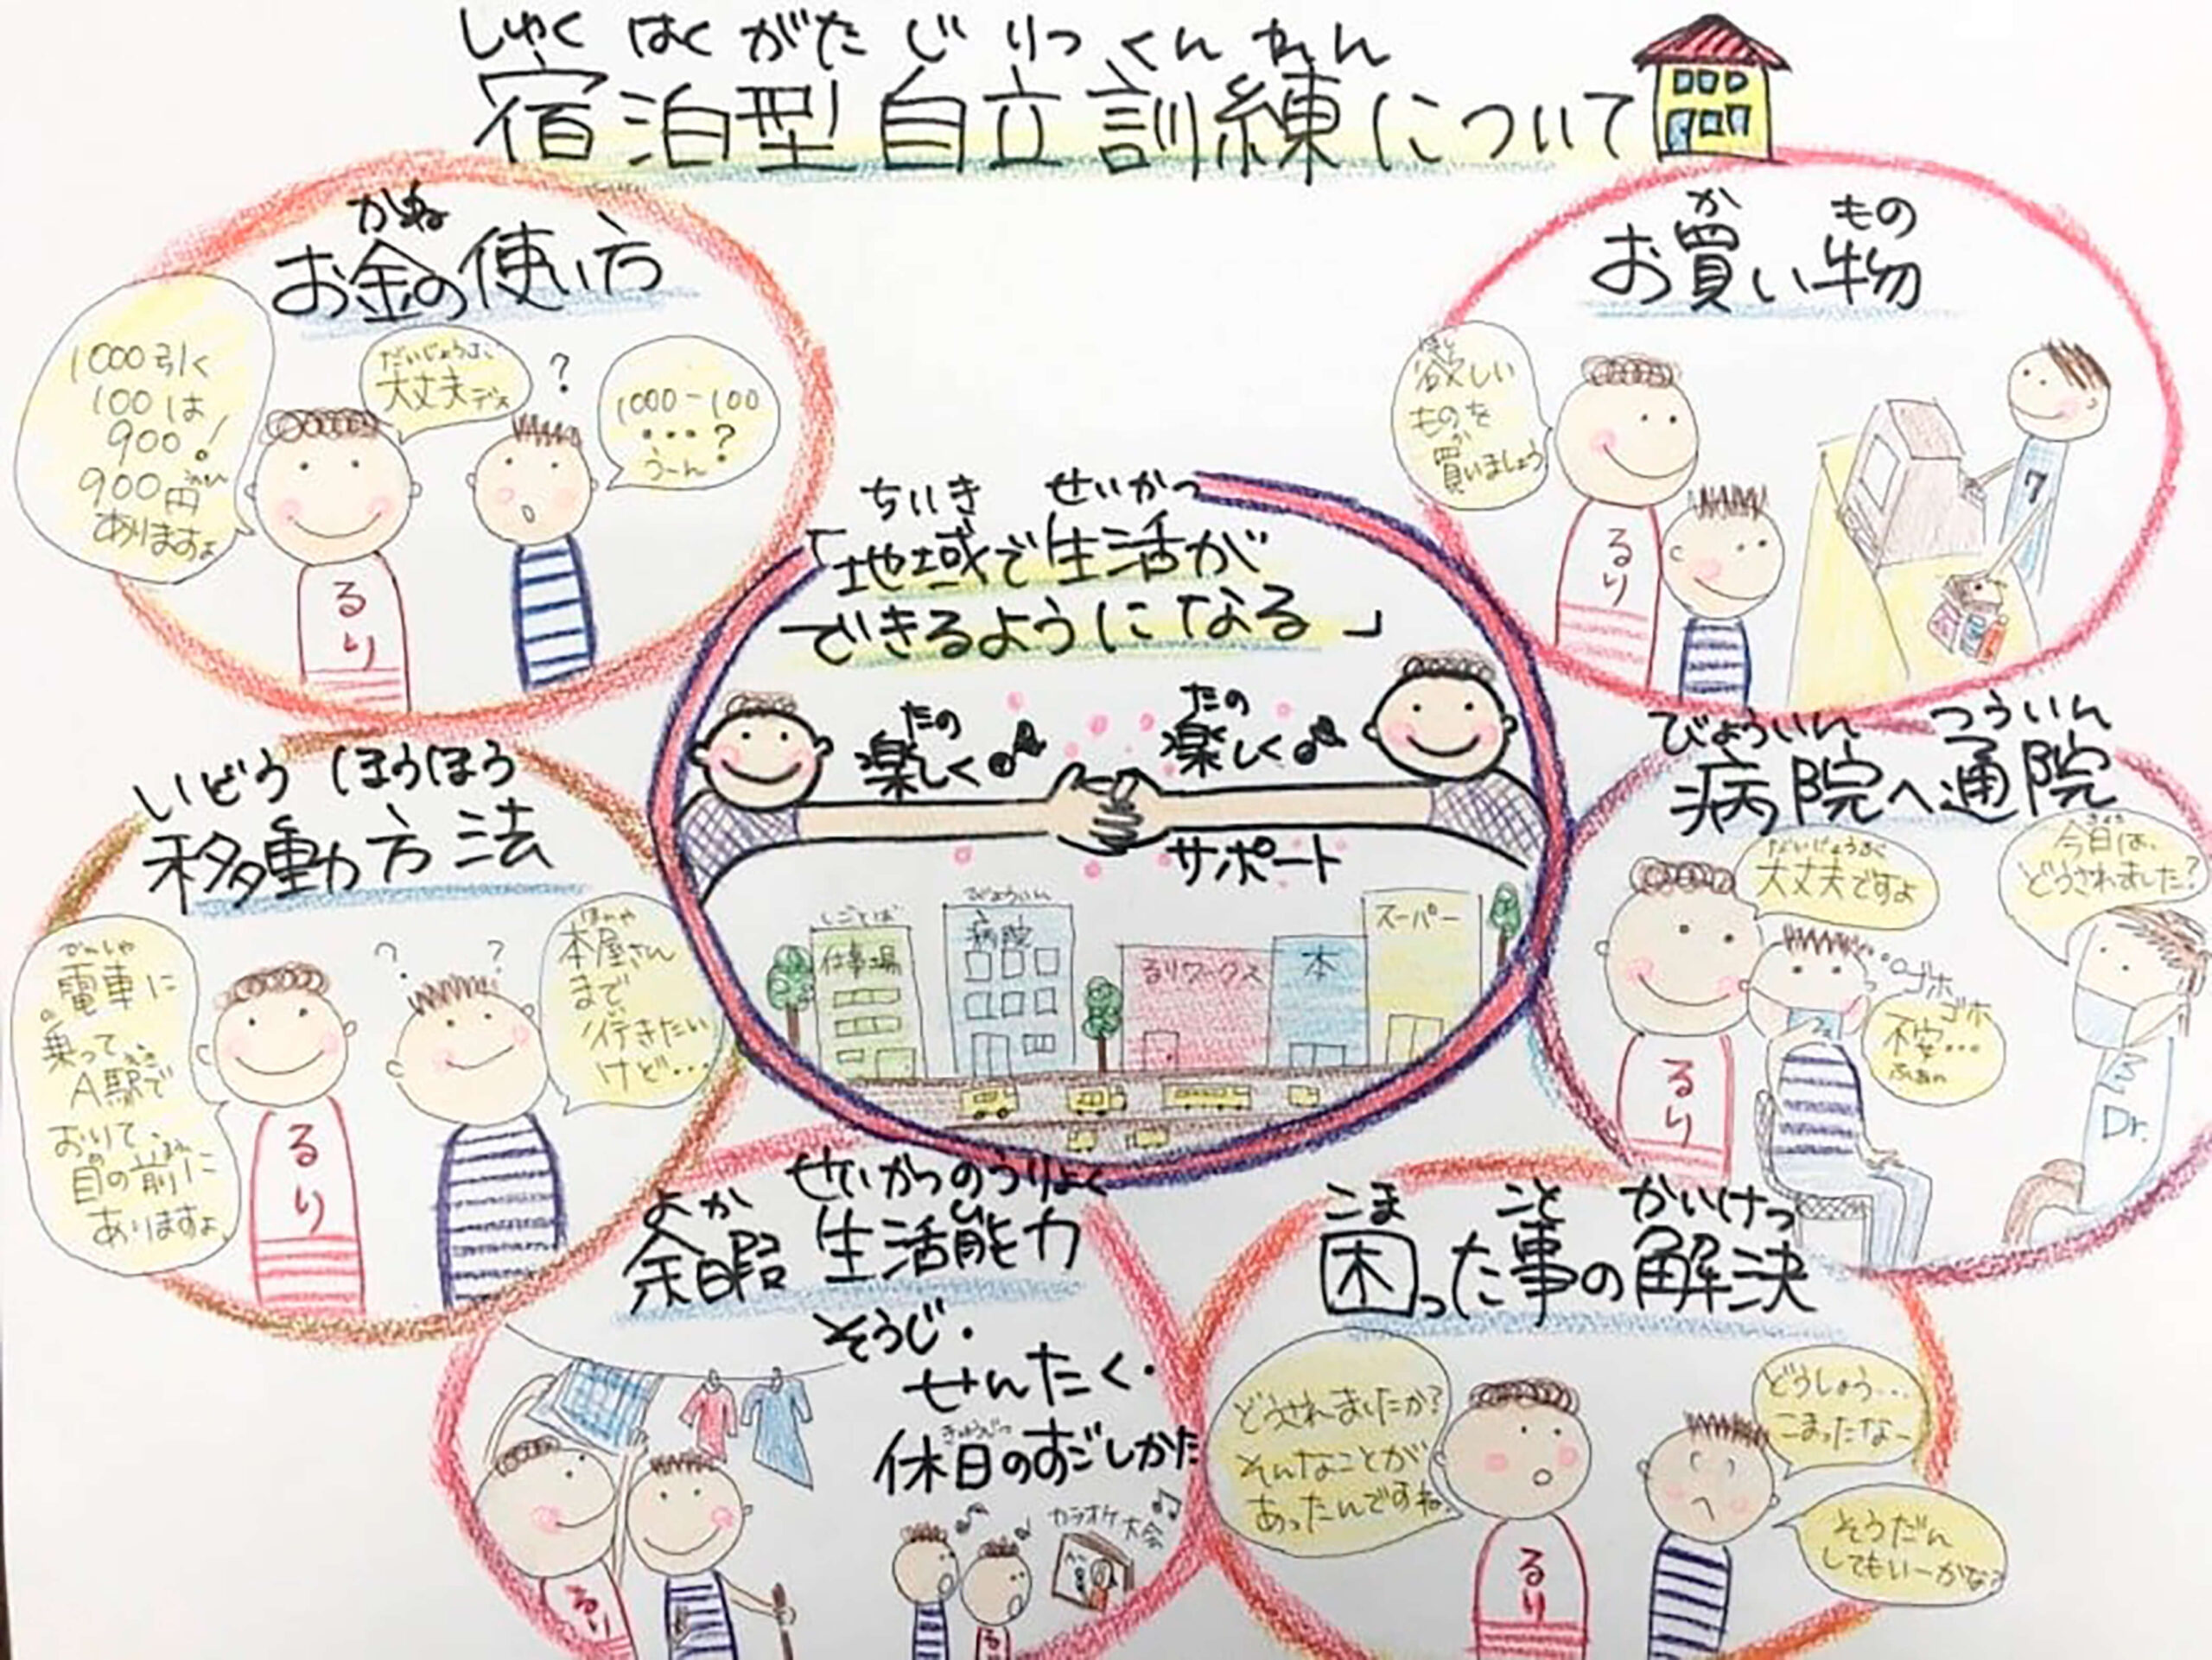 しゅくはくがたじりつくんれん
宿泊型自立訓練について
かね
お金の使い方
1000引く
100は
900!
900円
ありますよ
だいじょうぶ
大丈夫デス
?
1000-100
・・・?
うーん
るり
か もの
お買い物
ほし
欲しい
ものを
か
買いましょう
るり
7
ちいき せいかつ
「地域で生活が
できるようになる」
たの
楽しく♪
たの
楽しく♪
サポート
しごとば
仕事場
びょういん
病院
るりワークス
本
スーパー
いどう ほうほう
移動方法
でんしゃ
電車に
の
乗って、
えき
A駅で
おりて、
め まえ
目の前に
ありますよ
? ?
ほんや
本屋さん
まで
行きたい
けど・・・
るり
びょういん つういん
病院へ通院
だいじょうぶ
大丈夫ですよ
きょう
今日は、
どうされました?
ゴホ
ゴホ
不安・・・
ふあん
るり
Dr.
よか せいかつのうりょく
余暇 生活能力
そうじ・
せんたく・
きゅうじつ
休日のすごしかた
カラオケ大会
るり
る
こま こと かいけつ
困った事の解決
どうされましたか?
そんなことが
あったんですね。
どうしよう・・・
こまったなー
そうだん
してもいーかな?
るり